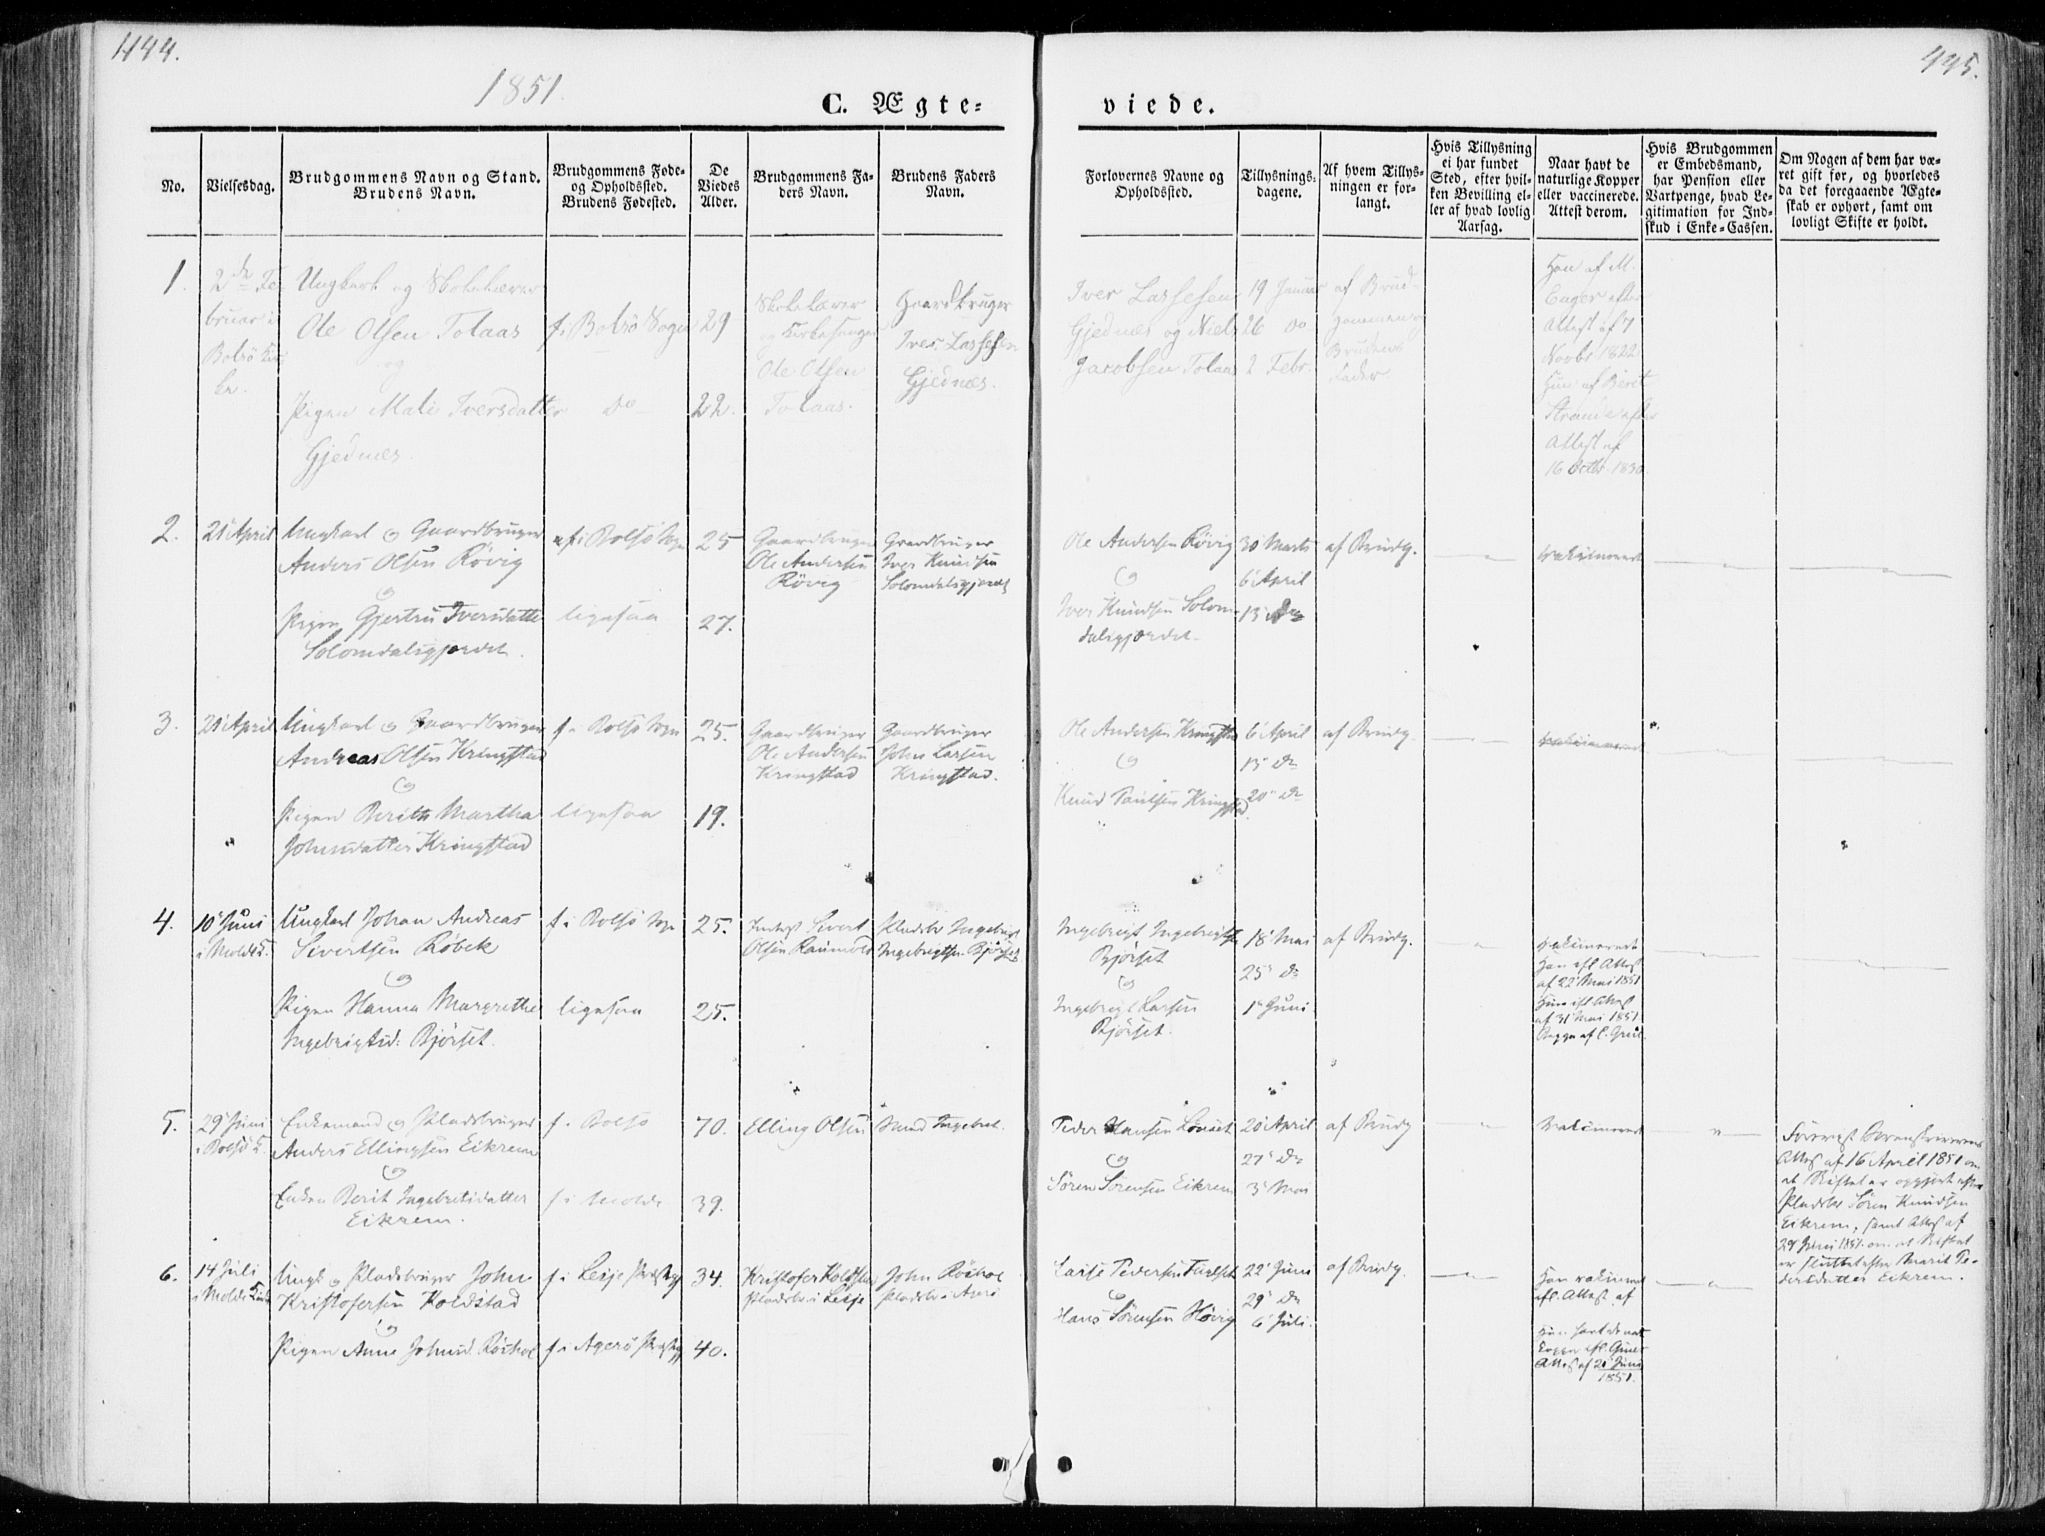 444.
445.
1851.
C. Ægte-
viede.
No.
Vielsesdag.
Brudgommens Navn og Stand.
Brudens Navn.
Brudgommens Føde-
og Opholdssted.
Brudens Fødested.
De
Viedes
Alder.
Brudgommens Fa-
ders Navn.
Brudens Faders
Navn.
Forlovernes Navne og
Opholdssted.
Tillysnings-
dagene.
Af hvem Tillys-
ningen er for-
langt.
Hvis Tillysning
ei har fundet
Sted, efter hvil-
ken Bevilling el-
ler af hvad lovlig
Aarsag.
Naar havt de
naturlige Kopper
eller vaccinerede.
Attest derom.
Hvis Brudgommen
er Embedsmand,
har Pension eller
Vartpenge, hvad Le-
gitimation for Ind-
skud i Enke-Cassen.
Om Nogen af dem har væ-
ret gift før, og hvorledes
da det foregaaende Ægte-
skab er ophørt, samt om
lovligt Skifte er holdt.
1.
2de Fe-
bruar i
Bolsö Kir-
ke.
Ungkarl og Skolelærer
Ole Olsen Tolaas
og
Pigen Mali Iversdatter
Gjednes.
f. i Bolsö Sogn
Do
29
22.
Skolelærer
og Kirkesanger
Ole Olsen
Tolaas.
Gaardbruger
Iver Lassesen
Gjednæs.
Iver Lassesen
Gjednæs og Niels
Jacobsen Tolaas
19 Januar
26 do
2 Febr.
af Brud-
gommen og
Brudens
Fader
Han af M.
Enger efter
Attest af 7
Novbr 1822
Hun af Berit
Strande efter
Attest af
16 Octbr. 1830
2.
21 April
Ungkarl og Gaardbruger
Anders Olsen Rövig
og
Pigen Gjertru Iversdatter
Solemdalsgjerdet.
f. i Bolsö Sogn
ligesaa
25
27.
Gaardbruger
Ole Andersen
Rövig
Gaardbruger
Iver Knudsen
Solemdalsgjerdet
Ole Andersen Rövig
og
Iver Knudsen Solem-
dalsgjerdet
30 Marts
6 April
13 do
af Brudg.
vakcinerede
3.
21 April
Ungkarl og Gaardbruger
Andreas Olsen Kringstad
og
Pigen Berith Martha
Johnsdatter Kringstad
f. i Bolsö Sogn
ligesaa
25.
19.
Gaardbruger
Ole Andersen
Kringstad
Gaardbruger
John Larsen
Kringstad.
Ole Andersen Kringstad
og
Knud Paulsen Kringstad
6 April
13 do
20 do
af Brudg.
vakcinerede
4.
10 Juni
i Molde K.
Ungkarl Johan Andreas
Sivertsen Röbek
og
Pigen Hanna Margrethe
Ingebrigtsd: Bjørset.
f. i Bolsö Sogn
ligesaa
25.
25.
Sivert
Olsen
Pladsbr Ingebrigt
Ingebrigtsen Bjørset
Ingebrigt Ingebrigtsen
Bjørset
og
Ingebrigt Larsen
Bjørset.
18 Mai
25 do
1 Juni
af Brudg.
vakcinerede
Han efl. Attest
af 22 Mai 1851
Hun efl. Attest
af 31 Mai 1851
Begge af
5.
29 Juni
i Bolsö K.
Enkemand og Pladsbruger
Anders Ellingsen Eikrem
og
Enken Berit Ingebretsdatter
Eikrem.
f. i Bolsö
f. i Molde
70.
39.
Elling Olsen
Peder Hansen Lönset
og
Sören Sörensen Eikrem
20 April
27 do
3 Mai
af Brudg
vakcinerede
Forevist Sorenskriverens
Attest af 16 April 1851 om
at Skiftet er opgjort efter
Pladsbr Sören Knudsen
Eikrem, samt Attest af
29 Juni 1851 om at Skiftet
er sluttet efter Marit Pe-
dersdatter Eikrem.
6.
14 Juli
i Molde Kirke
Ungk. og Pladsbruger John
Kristofersen Koldstad
og
Pigen Anne Johnsd.
f. i Lesje Præstegj
f. i Agerö Præstegj
34.
40.
Kristofer Koldstad
Pladsbr i Lesje
John
Pladsbr i Agerö
Lasse Pedersen
og
Hans Sörensen Hövig
22 Juni
29 do
6 Juli.
af Brudg.
Han vakcineret
efl. Attest af
Hun havt de nat.
Kopper efl.
Attest af 20 Juni
1851.